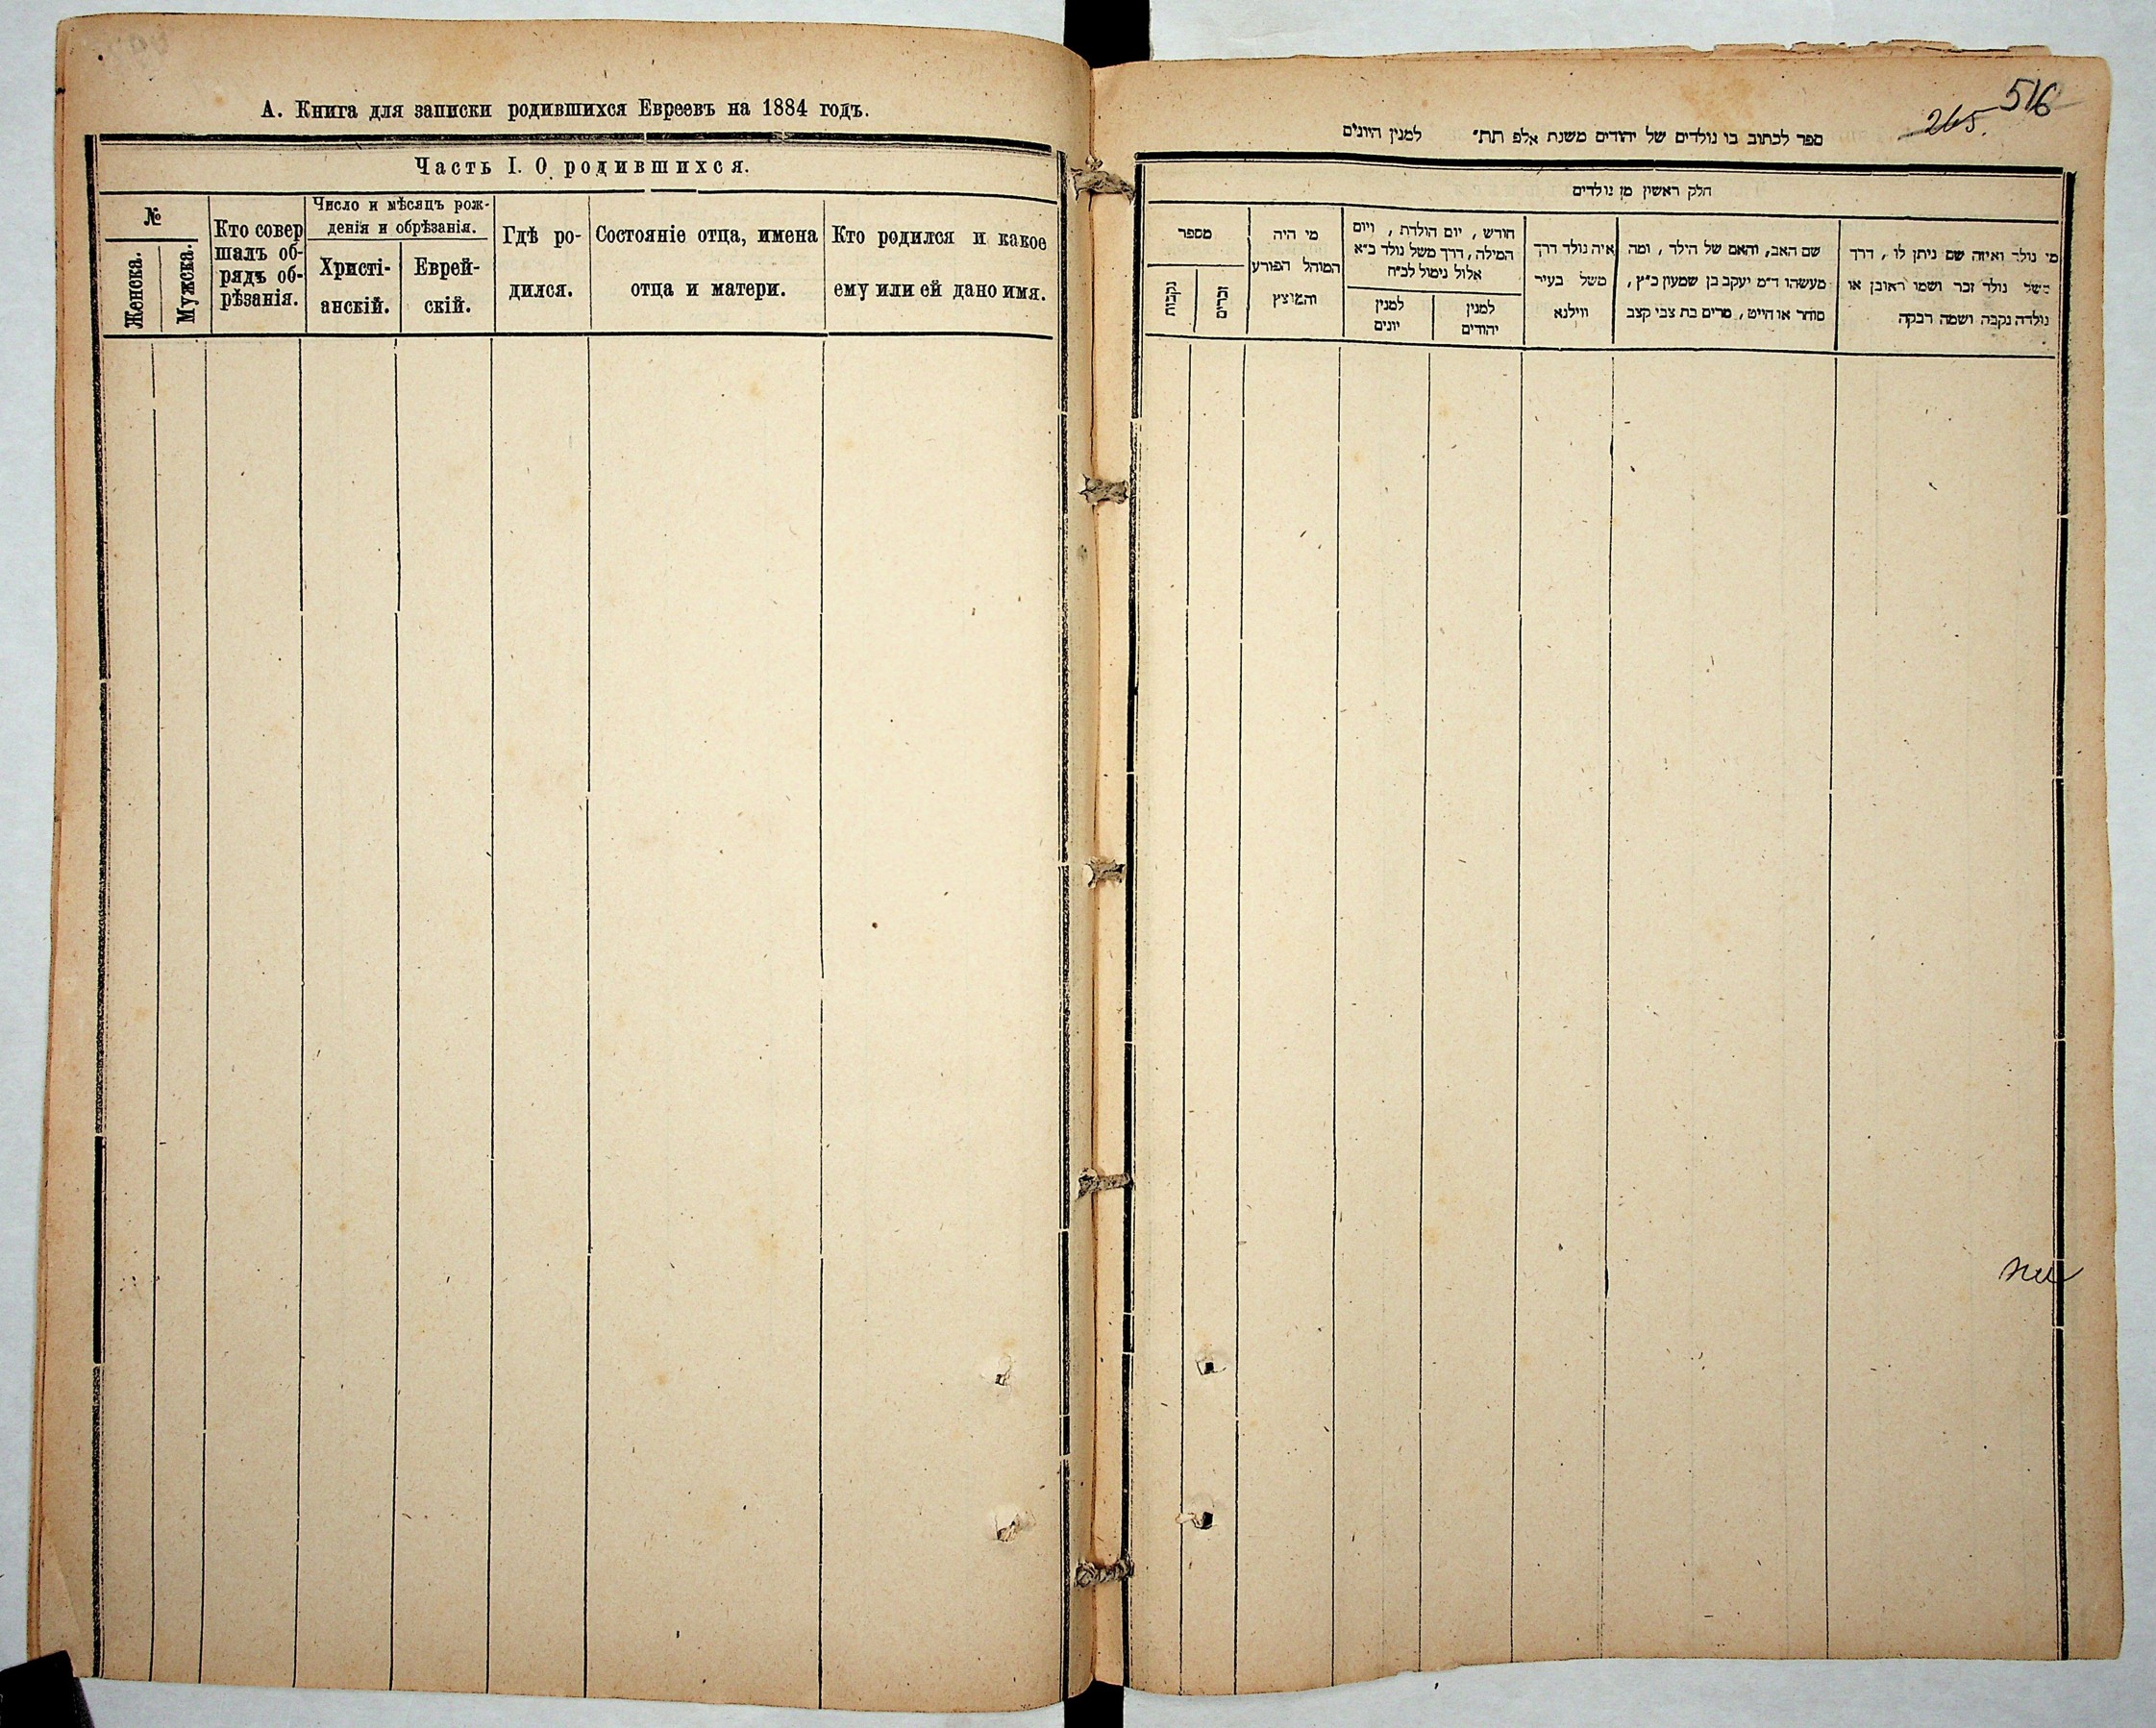 А. Книга для записки родившихся Евреевъ на 1884 годъ.
Часть I. О родившихся.
№
Женска.
Мужска.
Кто совер
шалъ об-
рядъ об-
рѣзанія.
Число и мѣсяцъ рож-
денія и обрѣзанія.
Христі-
анскій.
Еврей-
скій.
Гдѣ ро-
дился.
Состояніе отца, имена
отца и матери.
Кто родился и какое
ему или ей дано имя.
516
265.
ספר לכתוב בו נולדים של יהודים משנת אלפ תת״ למנין היונים
חלק ראשון מן נולדים
מי נולד ואיזה שם ניתן לו, דרך
משל נולד זכר ושמו ראובן או
נולדה נקבה ושמה רבקה
שם האב, והאם של הילד, ומה
מעשהו ד״מ יעקב בן שמעון כ״ץ,
סוחר או חייט, מרים בת צבי קצב
איה נולד דרך
משל בעיר
ווילנא
חודש, יום הולדת, ויום
המילה, דרך משל נולד כ״א
אלול נימול לכ״ח
למנין
יהודים
למנין
יונים
מי היה
המוהל הפורע
והמוצץ
מספר
זכרים
נקבות